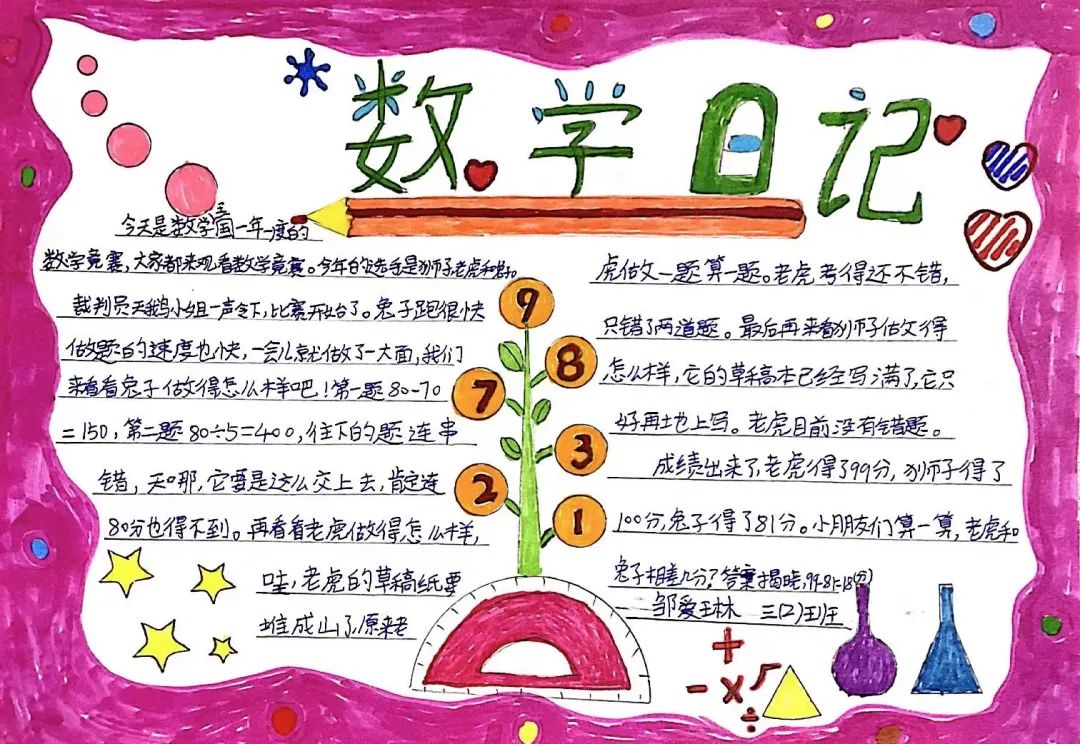 数学日记
今天是数学王国一年一度的
数学竞赛,大家都来观看数学竞赛。今年的选手是狮子老虎和
裁判员天鹅小姐一声令下,比赛开始了。兔子跑很快
做题的速度也快,一会儿就做了一大面,我们
来看看兔子做得怎么样吧!第一题80-70
=150,第二题80÷5=400,往下的题连串
错,天哪,它要是这么交上去,肯定连
80分也得不到。再看看老虎做得怎么样,
哇,老虎的草稿纸要
堆成山了,原来老
虎做一题算一题。老虎考得还不错,
只错了两道题。最后再来看狮子做得
怎么样,它的草稿本已经写满了,它只
好再地上写。老虎目前没有错题。
成绩出来了,老虎得了99分,狮子得了
100分,兔子得了81分。小朋友们算一算,老虎和
兔子相差几分?答案揭晓,99-81=18(分)
邹爱琳 三(2)班
9
8
7
3
2
1
+
- × √
÷